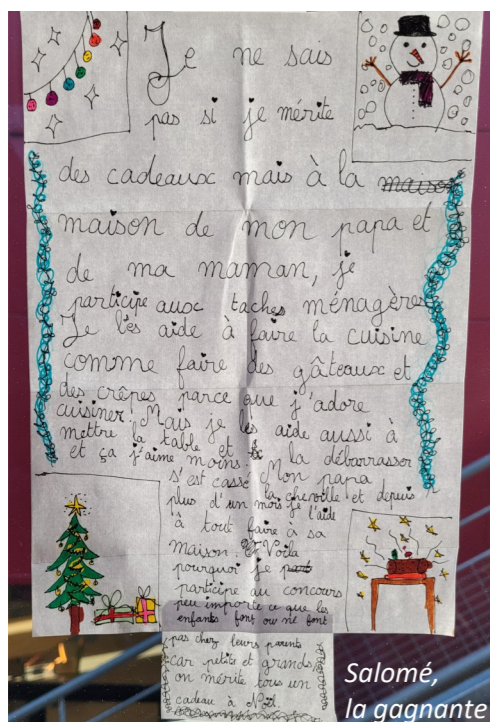 Je ne sais
pas si je mérite
des cadeaux mais à la maison
maison de mon papa et
de ma maman, je
participe aux taches ménagères
Je les aide à faire la cuisine
comme faire des gâteaux et
des crêpes parce que j'adore
cuisiner! Mais je les aide aussi à
mettre la table et la débarrasser
et ça j'aime moins. Mon papa
s'est cassé la cheville et depuis
plus d'un mois je l'aide
à tout faire à sa
maison. Voila
pourquoi je
participe au concours
peu importe ce que les
enfants font ou ne font
pas chez leurs parents
car petits et grands
on mérite tous un
cadeau à Noël
Salomé,
la gagnante